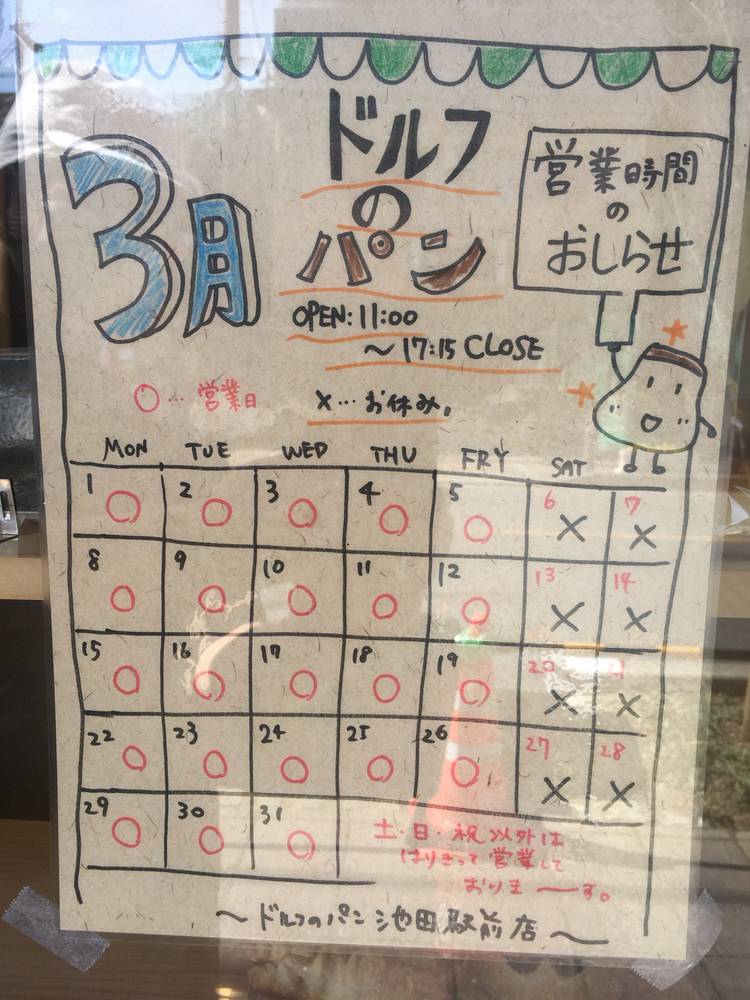 3月
ドルフ
の
パン
営業時間
の
おしらせ
OPEN:11:00
〜17:15 CLOSE
○…営業日
×…お休み。
MON TUE WED THU FRY SAT
1 2 3 4 5 6 7
○ ○ ○ ○ ○ × ×
8 9 10 11 12 13 14
○ ○ ○ ○ ○ × ×
15 16 17 18 19 20 21
○ ○ ○ ○ ○ × ×
22 23 24 25 26 27 28
○ ○ ○ ○ ○ × ×
29 30 31
○ ○ ○
土・日・祝以外は
はりきって営業して
おりま〜す。
〜ドルフのパン池田駅前店〜